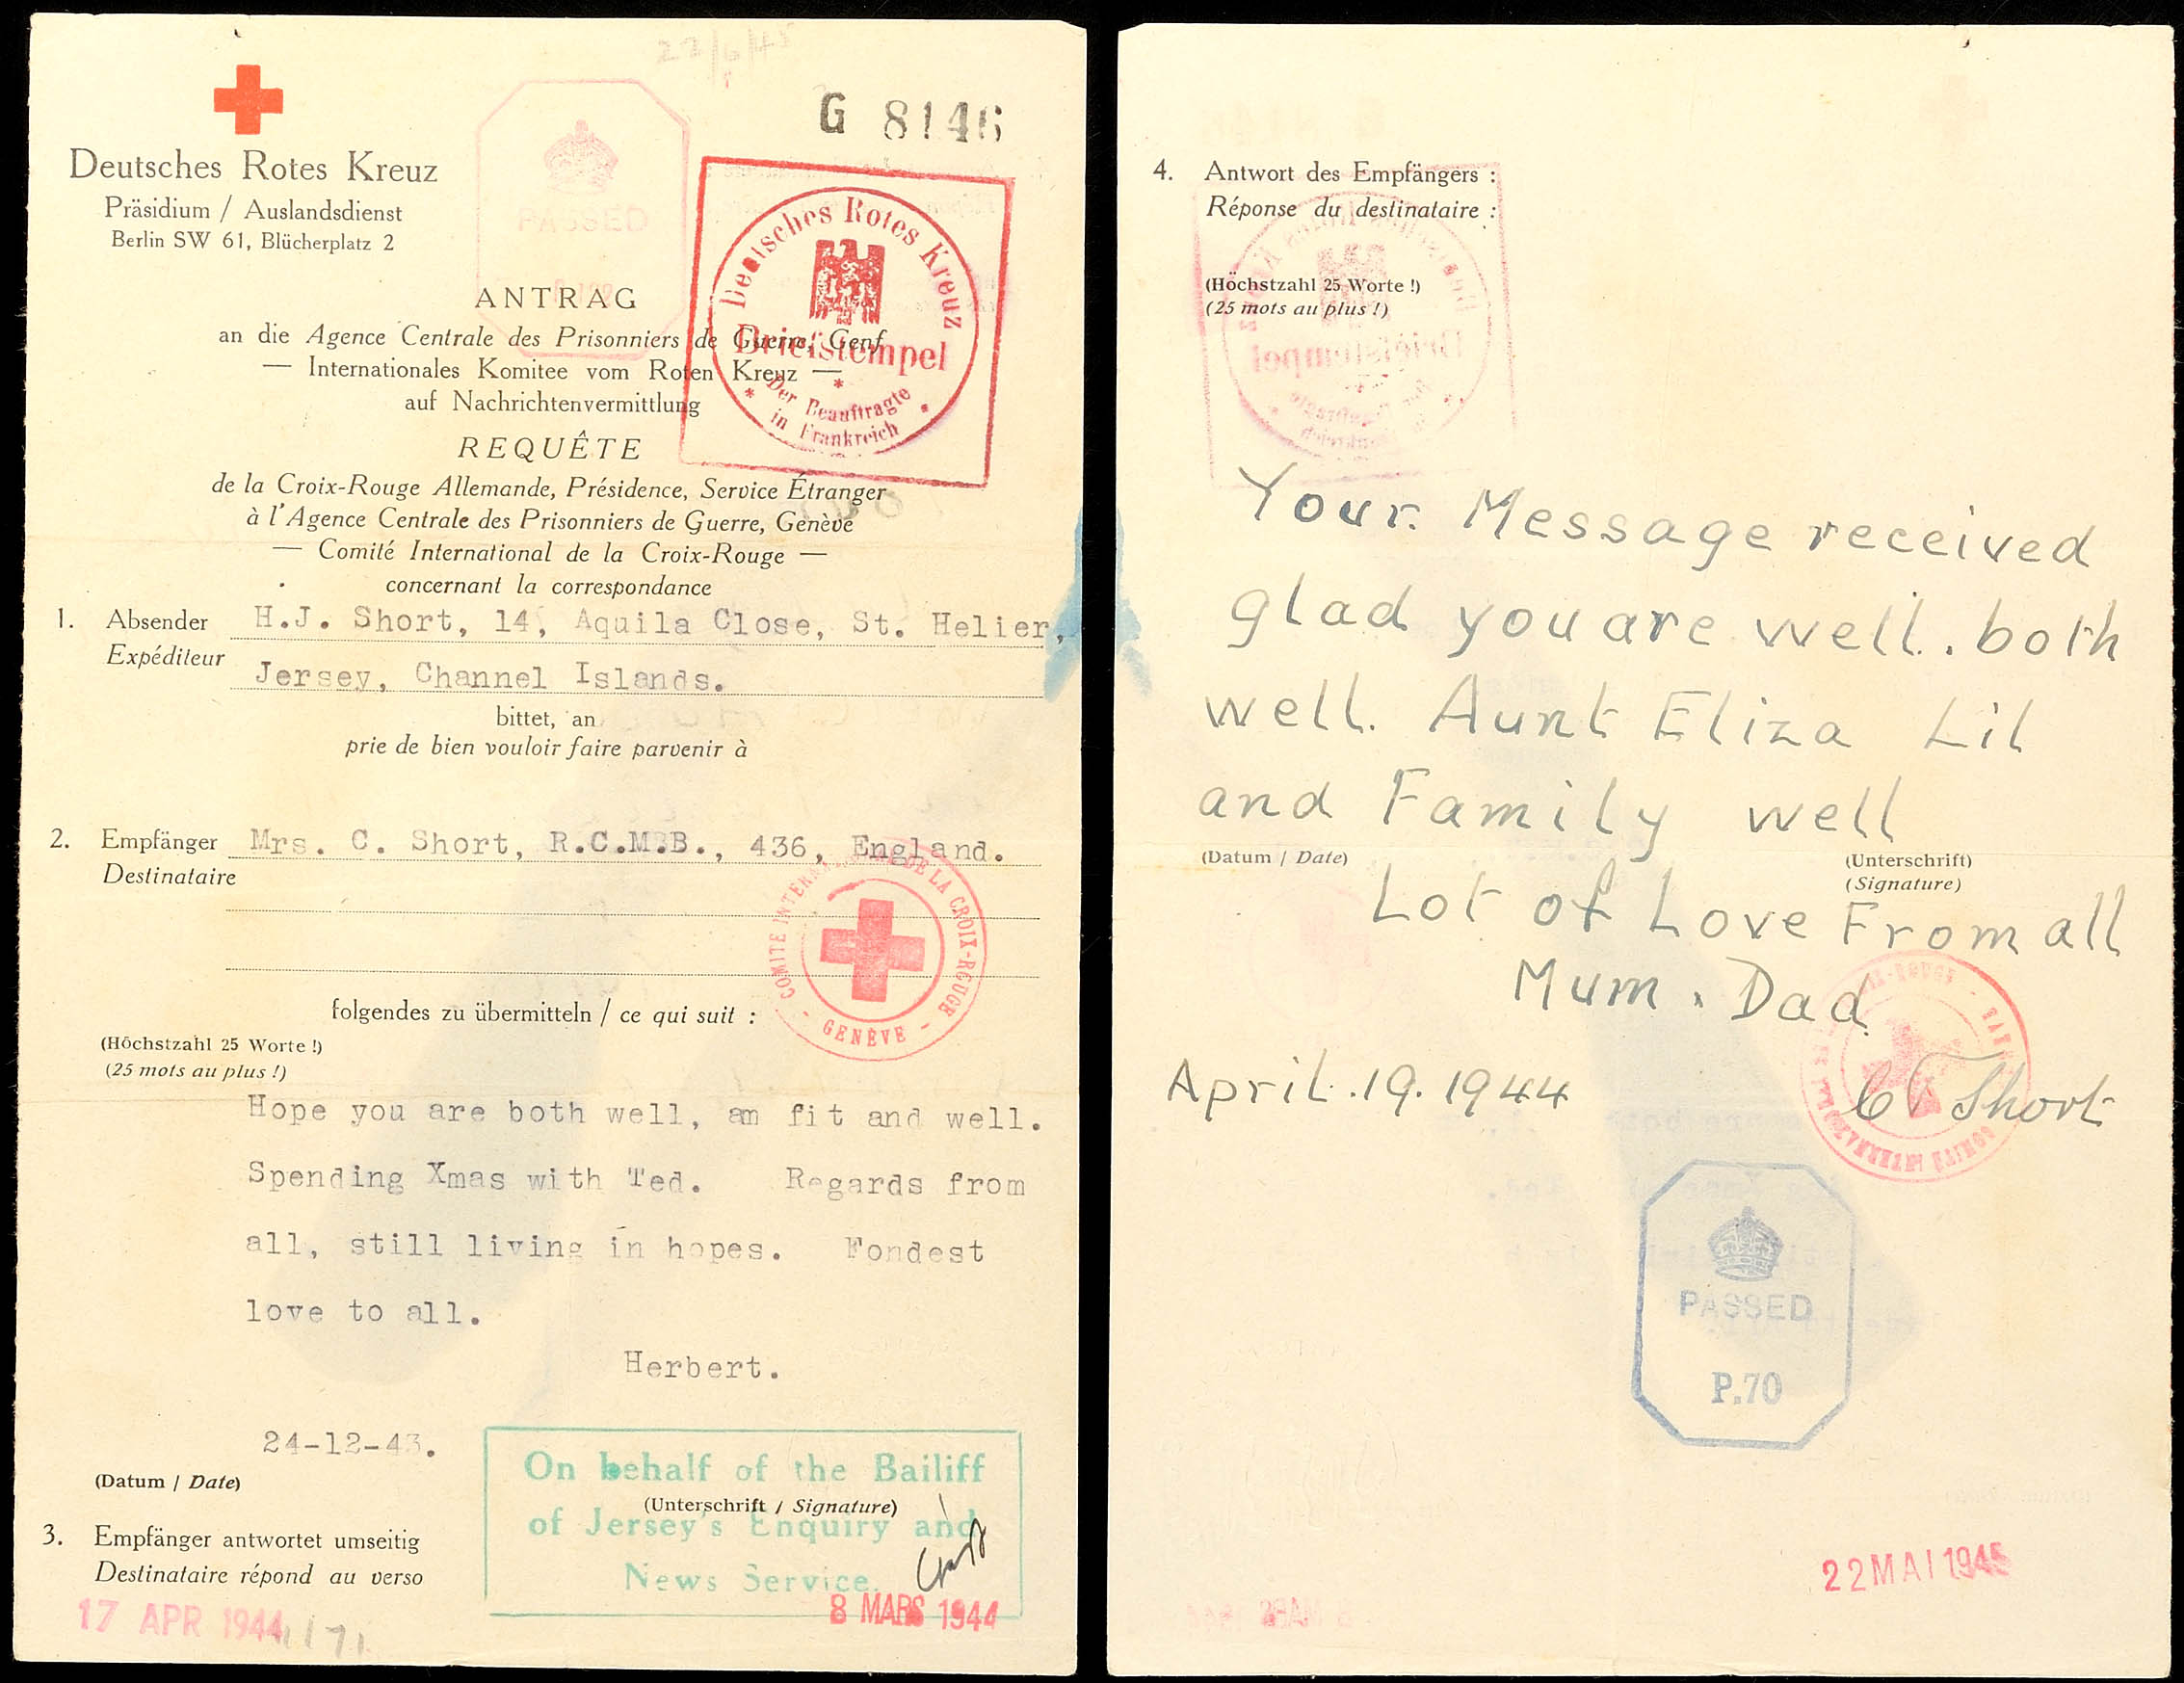 22/6/45
G 8146
Deutsches Rotes Kreuz
Präsidium / Auslandsdienst
Berlin SW 61, Blücherplatz 2
PASSED
Deutsches Rotes Kreuz
Briefstempel
Der Beauftragte
in Frankreich
ANTRAG
an die Agence Centrale des Prisonniers de Guerre, Genf
— Internationales Komitee vom Roten Kreuz —
auf Nachrichtenvermittlung
REQUÊTE
de la Croix-Rouge Allemande, Présidence, Service Étranger
à l'Agence Centrale des Prisonniers de Guerre, Genève
— Comité International de la Croix-Rouge —
concernant la correspondance
1. Absender H.J. Short, 14, Aquila Close, St. Helier,
Expéditeur Jersey, Channel Islands.
bittet, an
prie de bien vouloir faire parvenir à
2. Empfänger Mrs. C. Short, R.C.M.B., 436, England.
Destinataire
COMITÉ INTERNATIONAL DE LA CROIX-ROUGE - GENÈVE -
folgendes zu übermitteln / ce qui suit :
(Höchstzahl 25 Worte !)
(25 mots au plus !)
Hope you are both well, am fit and well.
Spending Xmas with Ted. Regards from
all, still living in hopes. Fondest
love to all.
Herbert.
24-12-43.
(Datum / Date)
On behalf of the Bailiff
(Unterschrift / Signature)
of Jersey's Enquiry and
News Service.
3. Empfänger antwortet umseitig
Destinataire répond au verso
17 APR 1944
8 MARS 1944
4. Antwort des Empfängers :
Réponse du destinataire :
(Höchstzahl 25 Worte !)
(25 mots au plus !)
Your Message received
glad you are well. both
well. Aunt Eliza Lil
and Family well
(Datum / Date) (Unterschrift)
(Signature)
Lot of Love From all
Mum. Dad
April.19.1944 C T Short
PASSED
P.70
22 MAI 1945